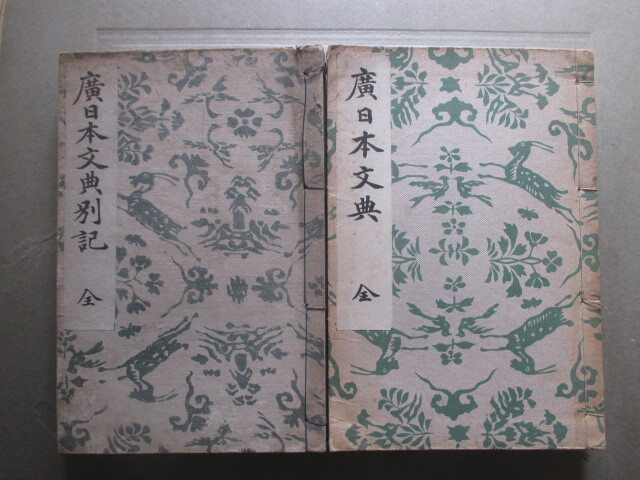 廣日本文典
全
廣日本文典別記
全